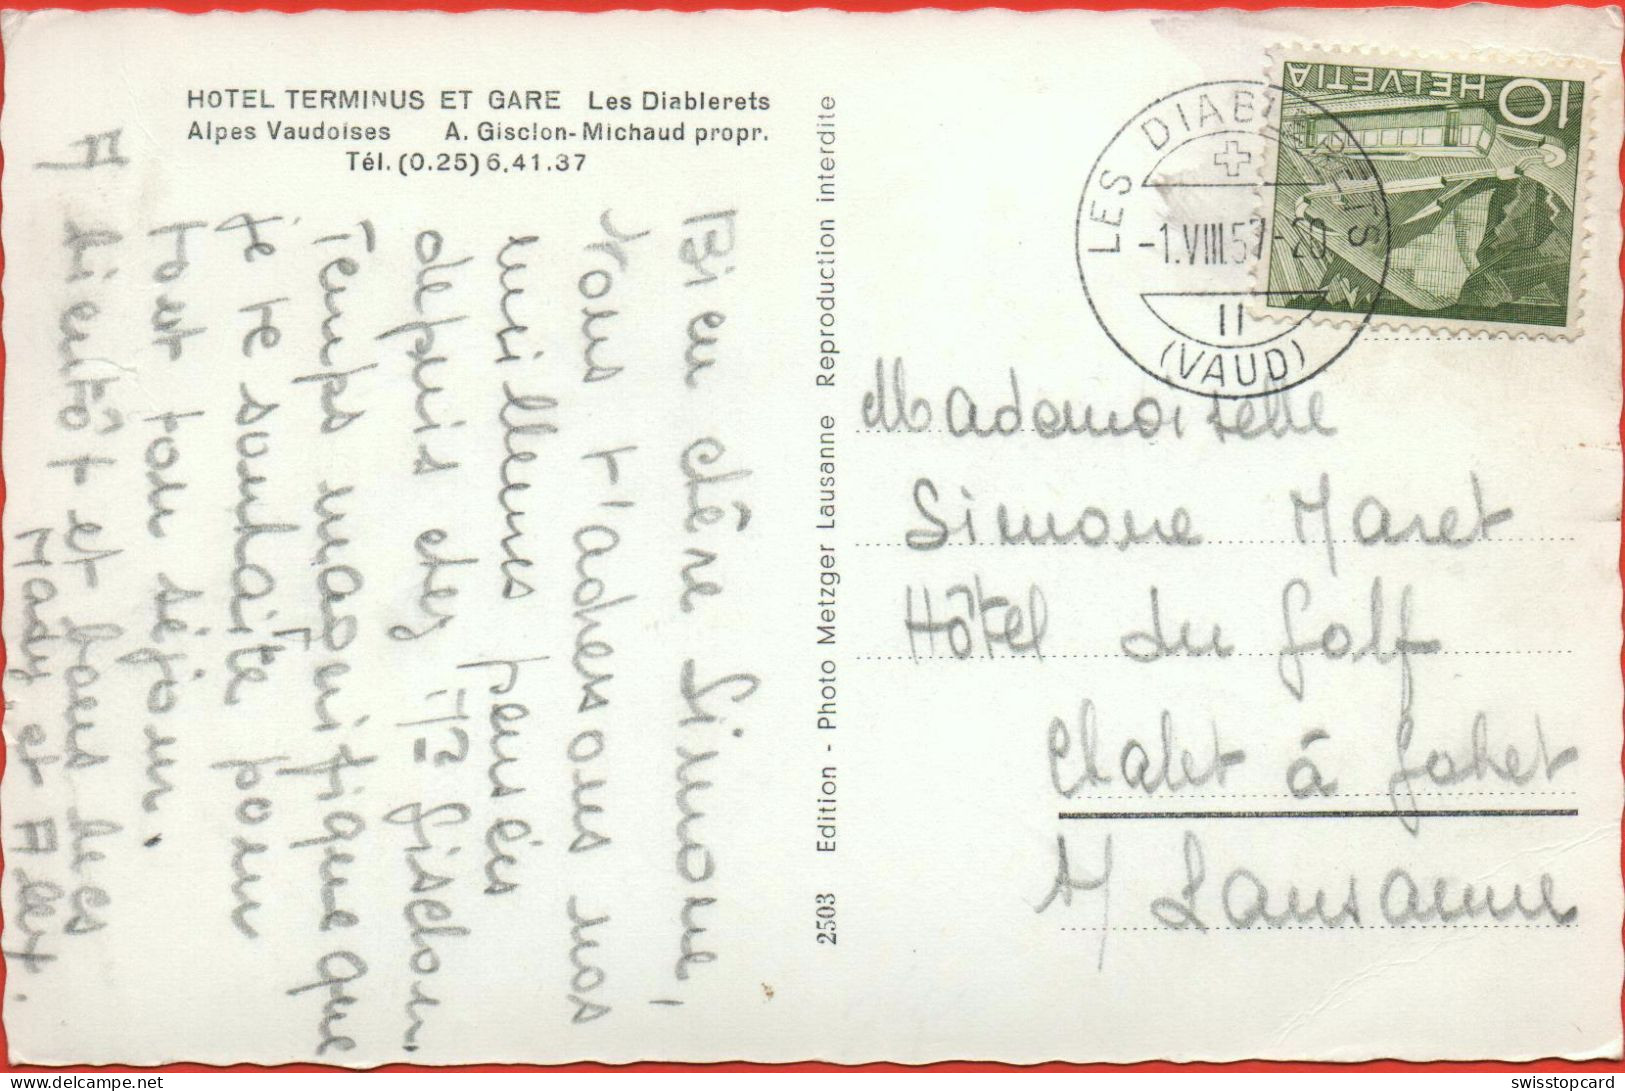 HOTEL TERMINUS ET GARE Les Diablerets
Alpes Vaudoises A. Gisclon-Michaud propr.
Tél. (0.25) 6.41.37
Bien chère Simone,
Nous t'adressons nos
meilleures pensées
depuis chez Mme Gisclon.
Temps magnifique que
je te souhaite pour
tout ton séjour.
A bientôt et bons becs
Mady et Alex.
2503 Edition - Photo Metzger Lausanne Reproduction interdite
LES DIABLERETS
-1.VIII.57-20
II
(VAUD)
HELVETIA
10
Mademoiselle
Simone Maret
Hôtel du Golf
Chalet à Gobet
s/ Lausanne
swisstopcard